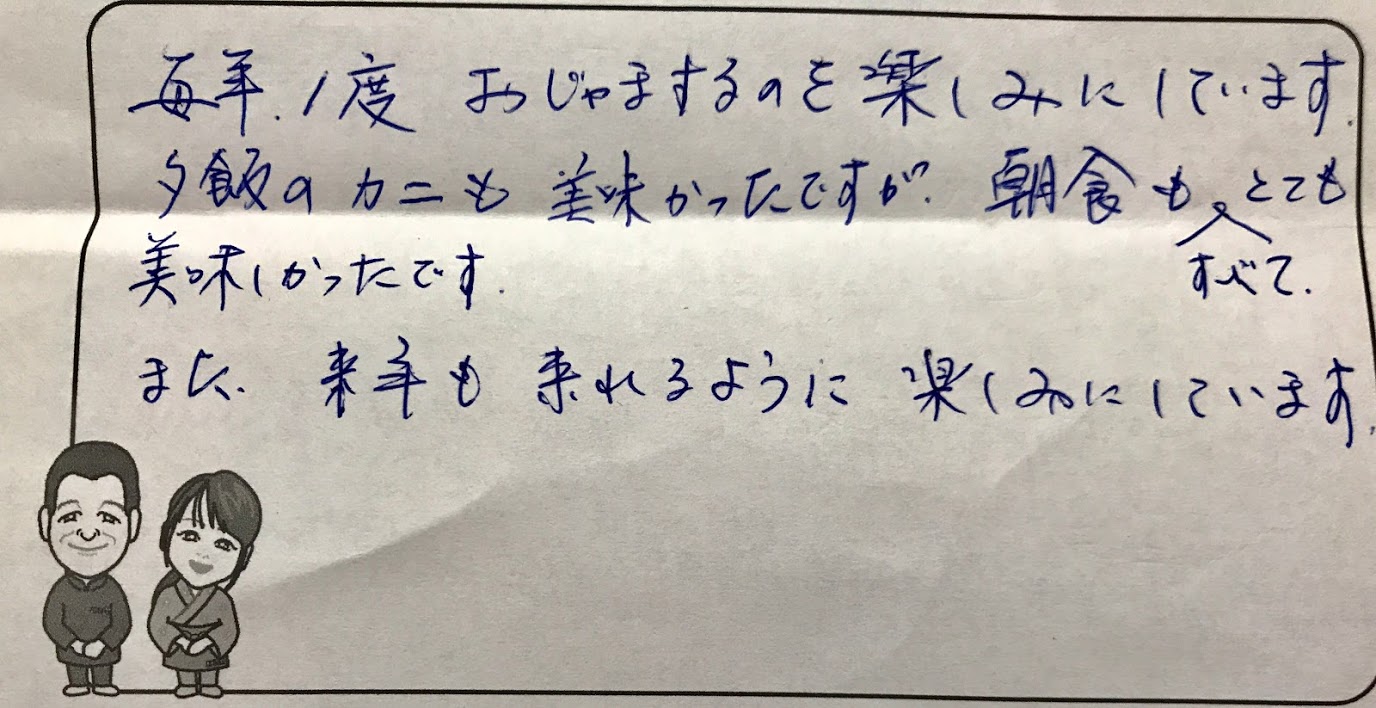 毎年、1度 おじゃまするのを楽しみにしています。
夕飯のカニも 美味かったですが、朝食も、とても
すべて、
美味しかったです。
また、来年も 来れるように 楽しみにしています。